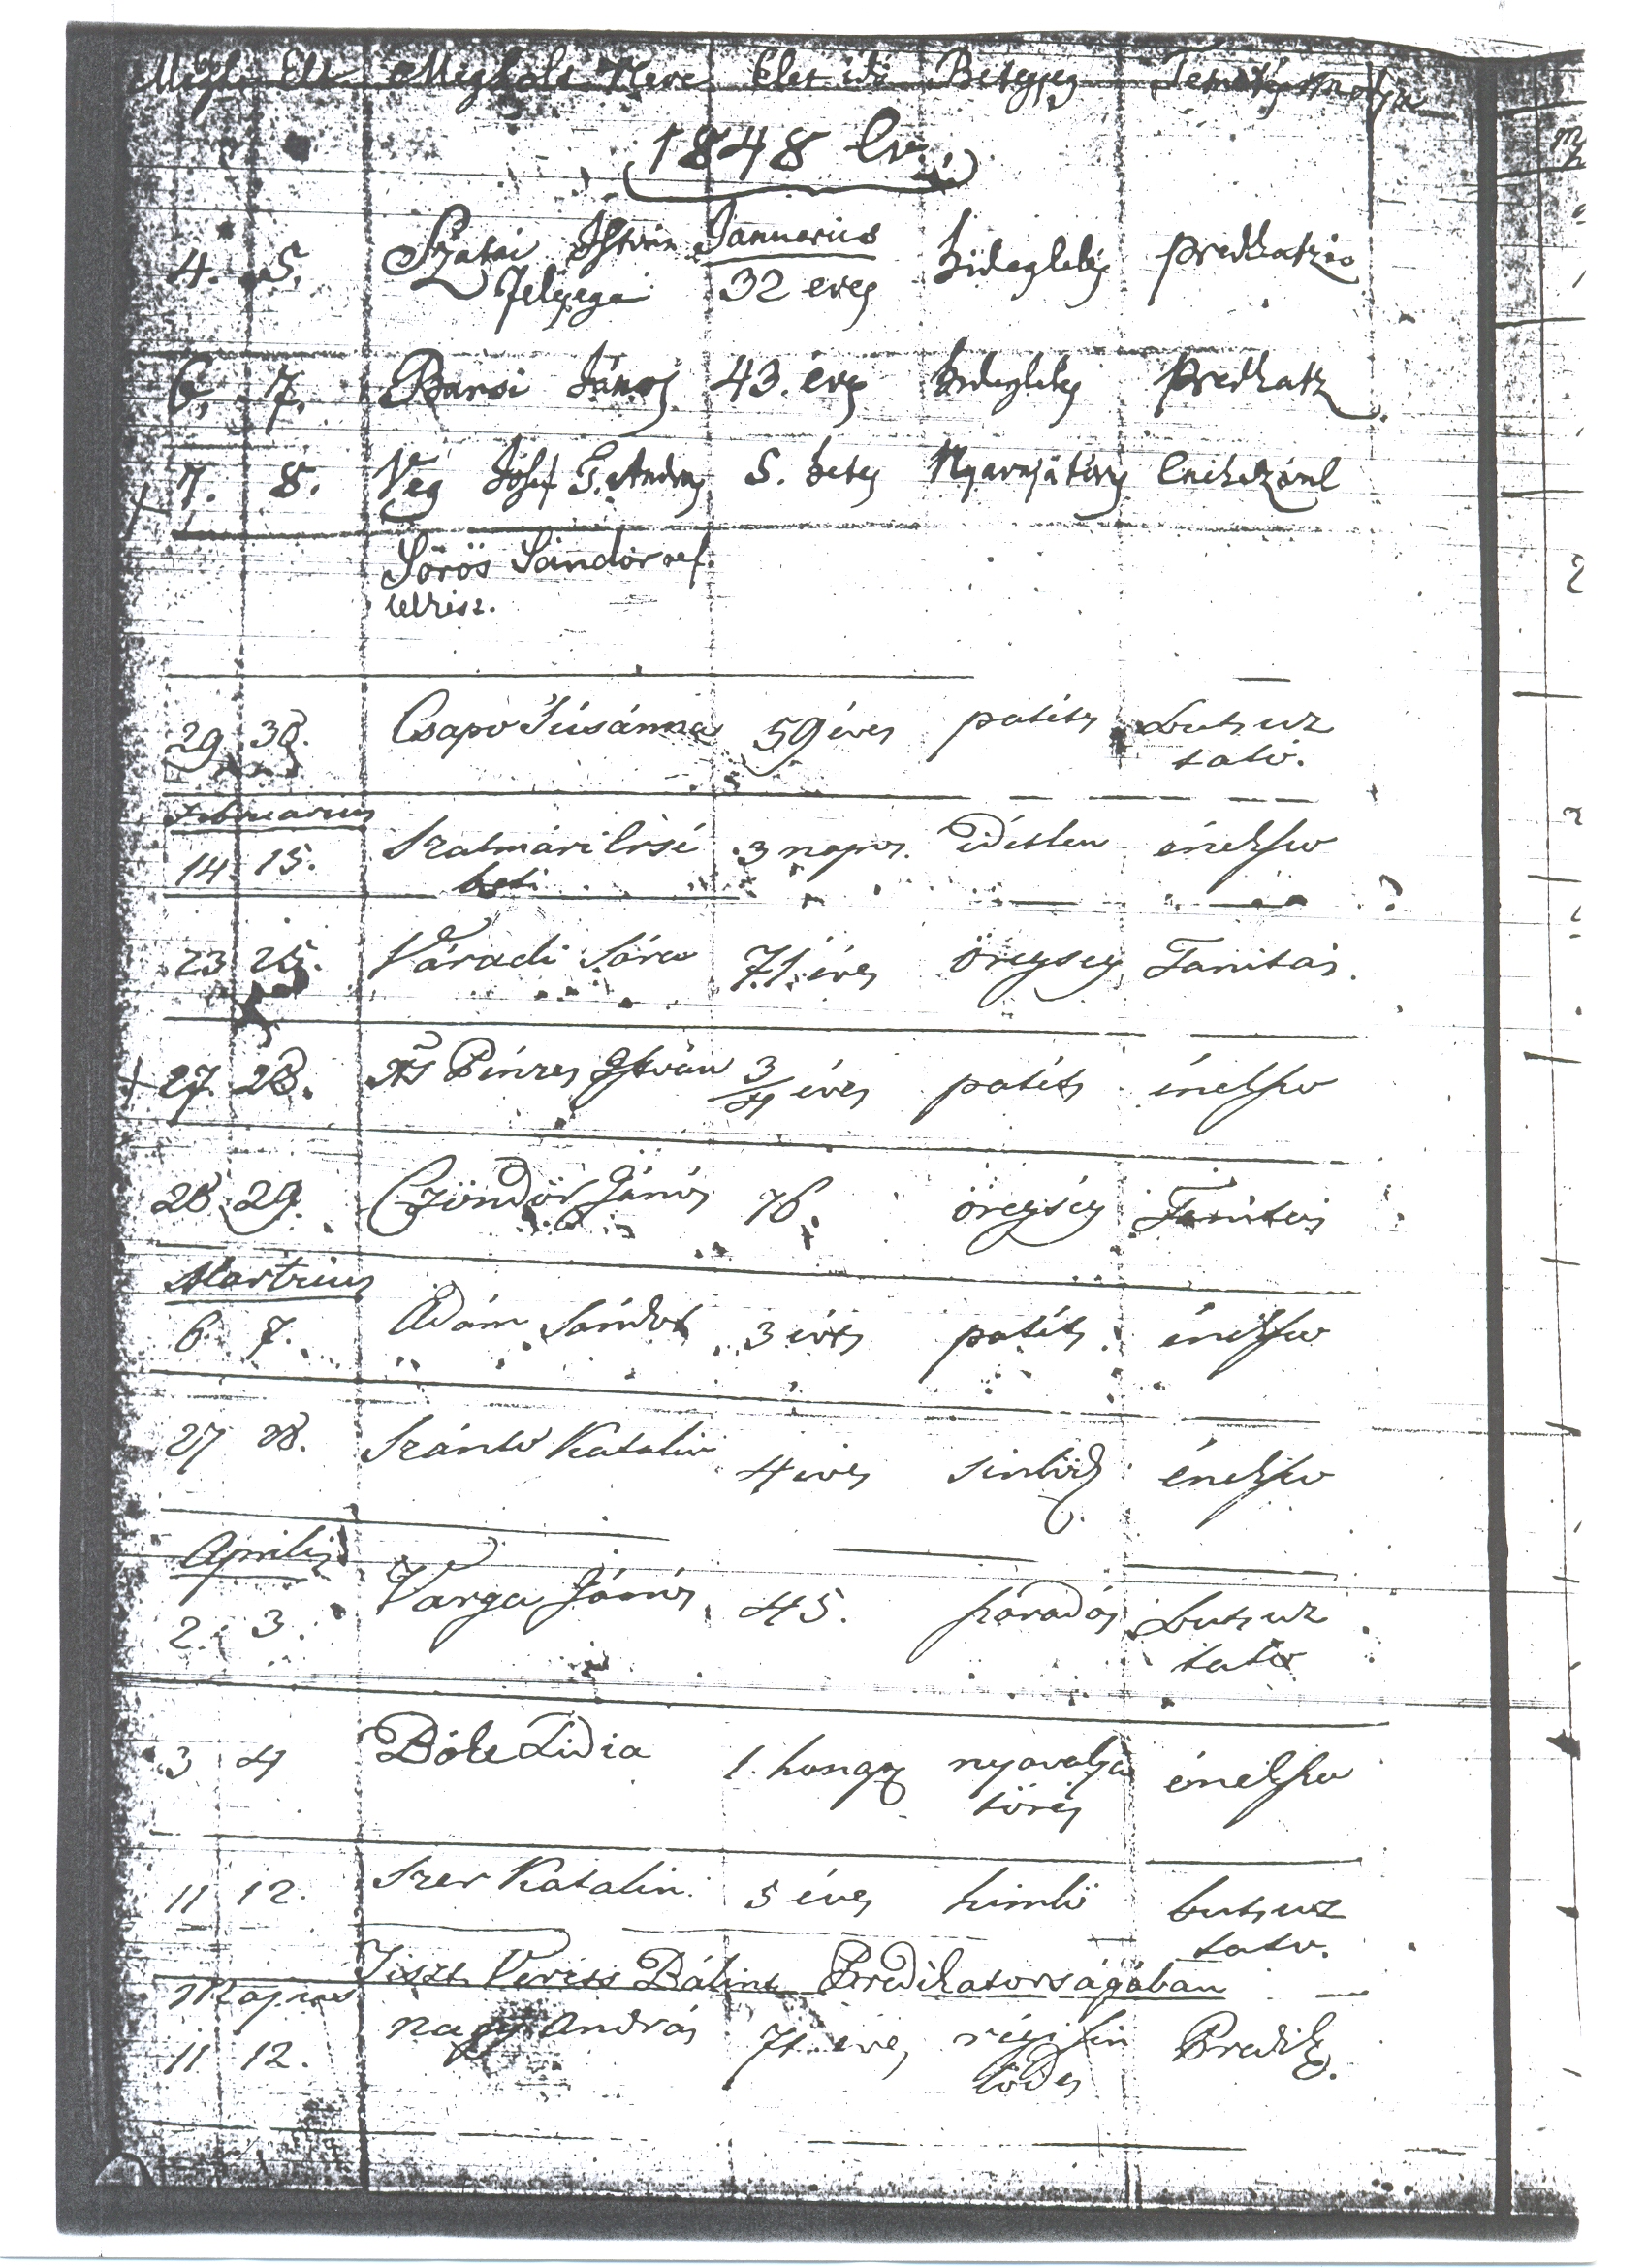 Megh. Elt. Megholt Neve Elet idő Betegség Temetés módja
1848 Év.
Januarius
4. 5. Szatai István Felesége 32 eves hideglelés Predikatzio
6. 7. Barsi János 43. éves hideglelés Predikatz
7. 8. Vég Jósef G. András 5. hetes Nyavajatörés Énekszóval
Sörös Sándor ref.
lelkész.
29 30. Csapo Susánna 59 éves patéts butsuz
tato.
Februarius
14 15. Szatmári Ersé 3 napos. idétlen énekszo
beti
23 25. Váradi Sára 71 éves öregség Tanitás.
27 28. Pénzes István 3/4 éves patéts énekszo
28 29. Czöndör János 76. öregség Tanitás
Martzius
6 7. Ádám Sándor 3 éves patéts énekszo
27 28. Szánto Katalin 4 éves sinlöd énekszo
Aprilis
2. 3. Varga János 45. száradás butsuz
tato
3 4 Böle Lidia 1. honapos nyavalya énekszo
törés
11 12. Szer Katalin 5 éves himlö butsuz
tato.
Tiszt. Veress Bálint Predikatorságában
Majus
11 12. Nagy András 71 éves régi sin Predik.
lödes